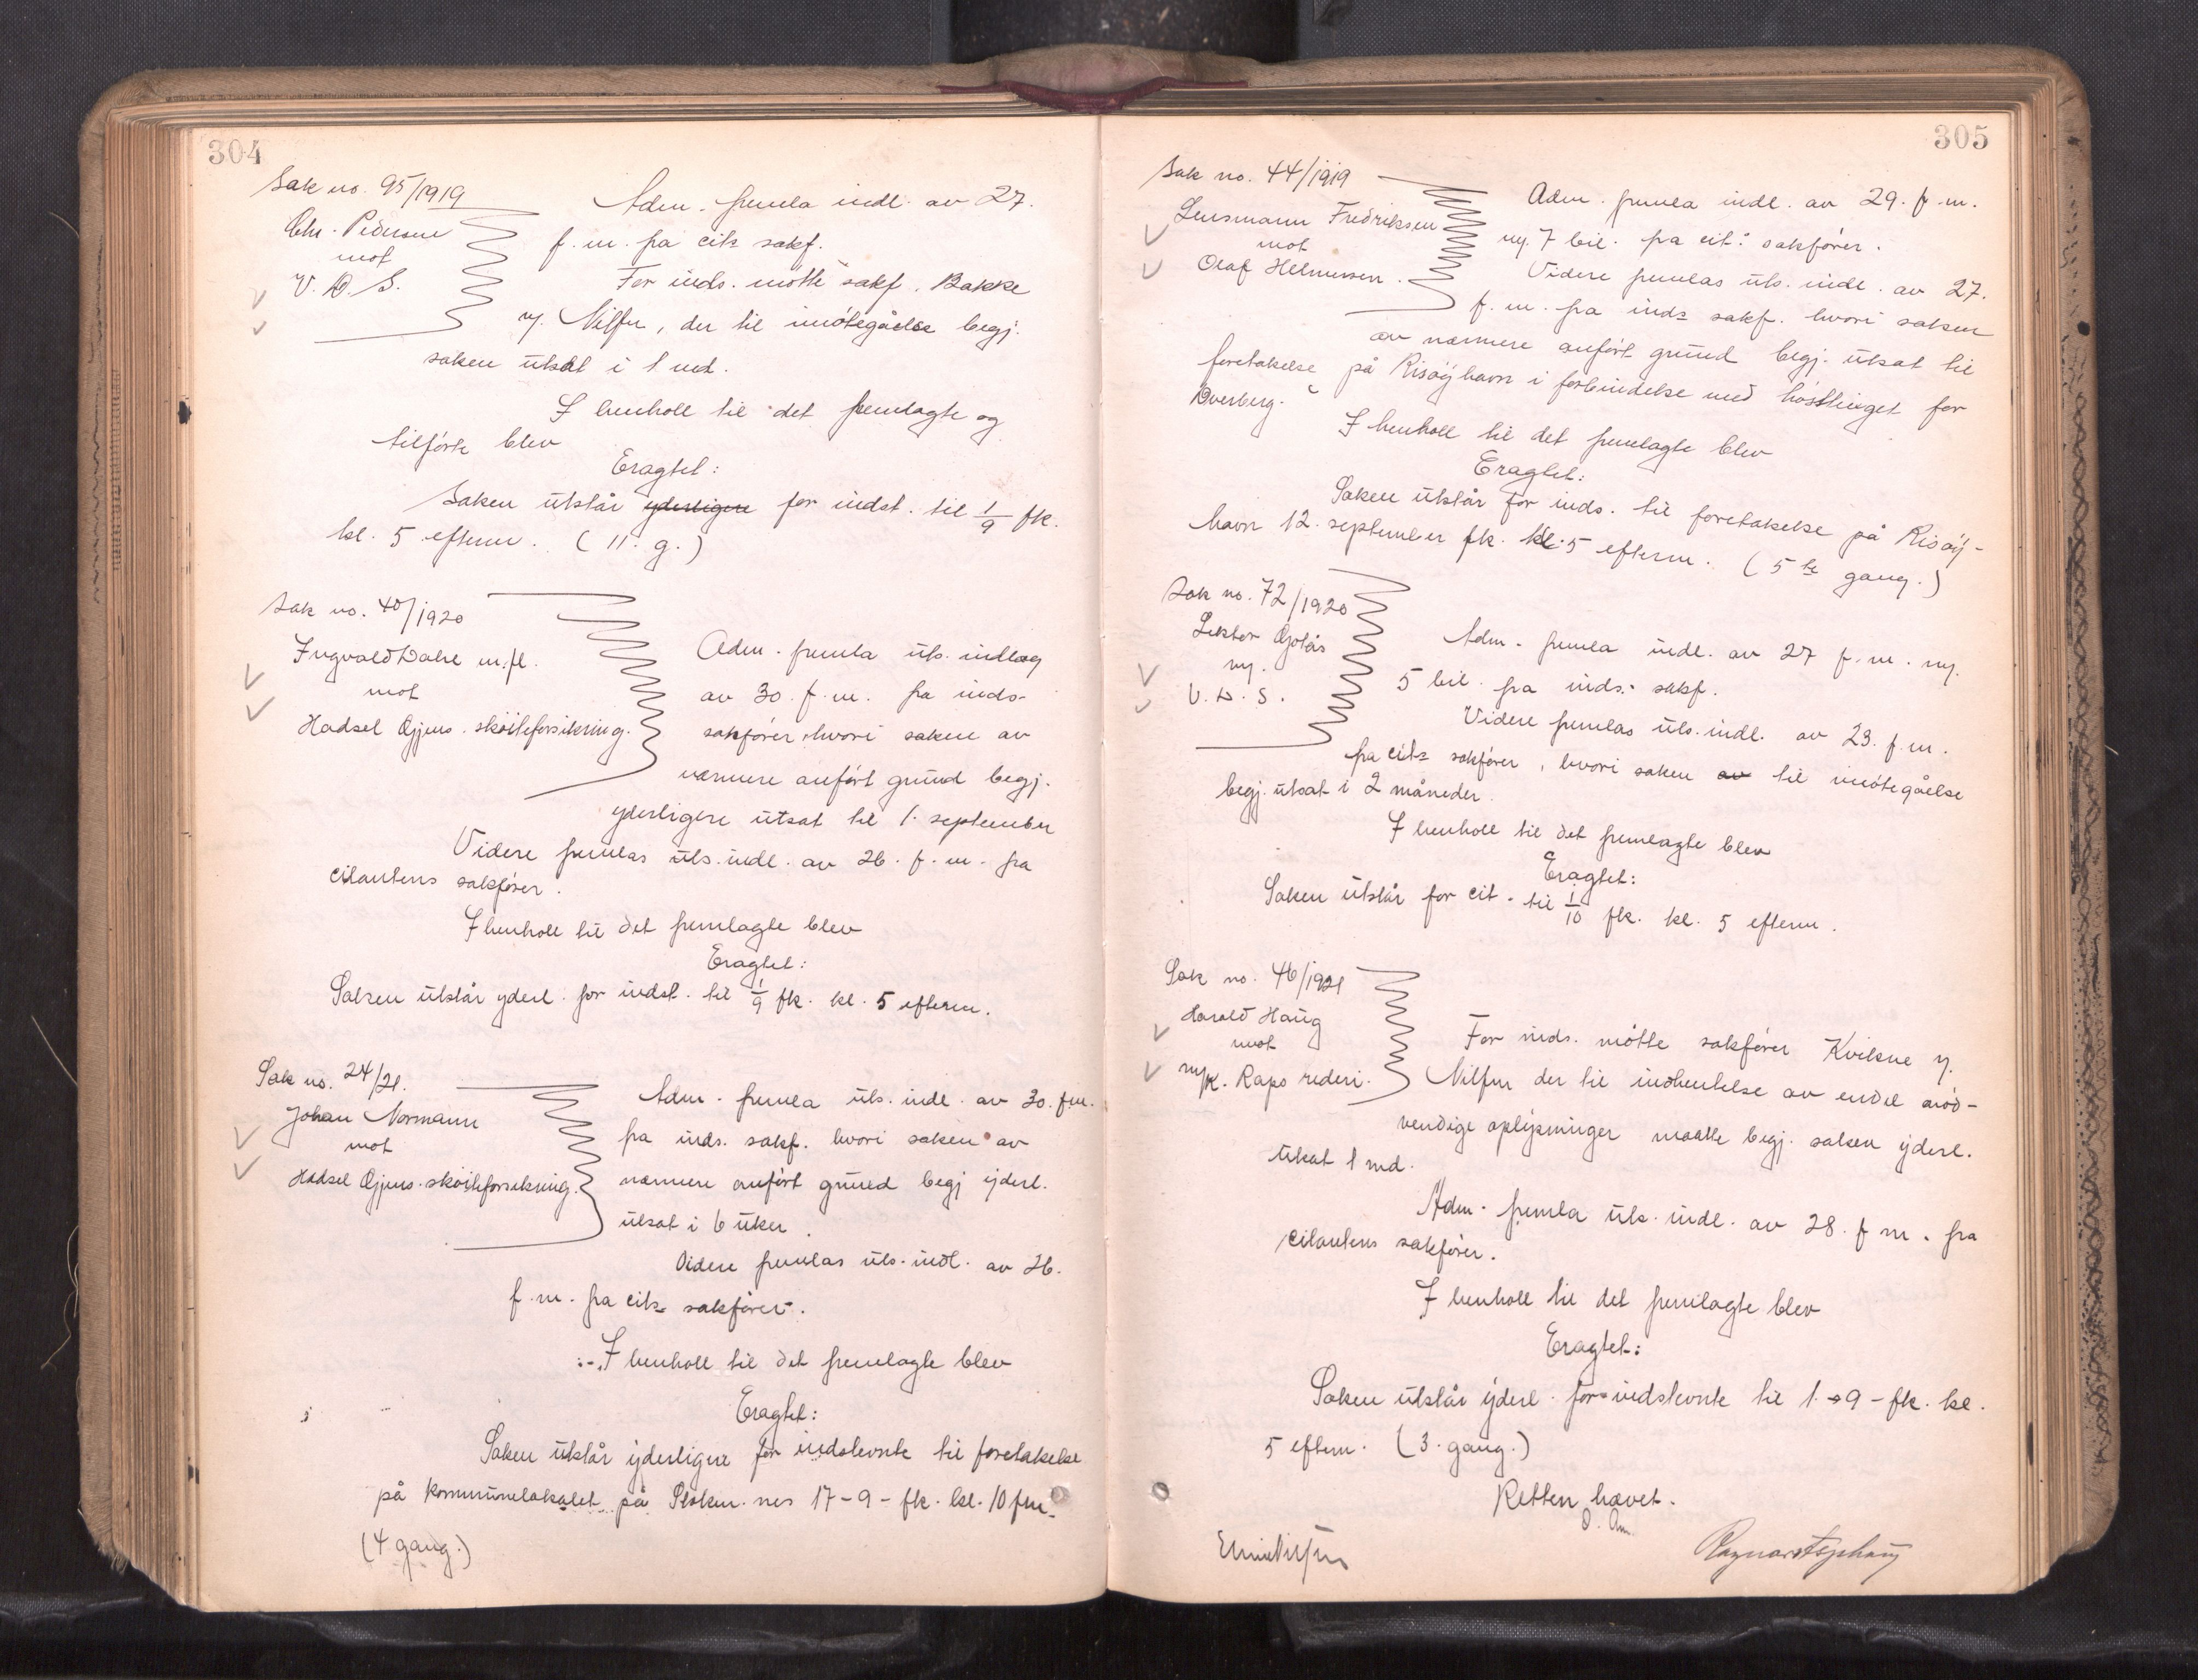 304
Sak no. 95/1919
Chr. Pedersen
mot
V. D. S.
Adm. fremla indl. av 27.
f. m. fra cits sakf.
For inds. mötte sakf. Bakke
v/ Nilsen, der til imötegåelse begj.
saken utsat i 1 md.
I henhold til det fremlagte og
tilförte blev
Eragtet:
Saken utstår yderligere for indst. til 1/9 fk.
kl. 5 efterm. (11. g.)
Sak no. 40/1920
Ingvald Dahl m.fl.
mot
Hadsel Gjens. skøiteforsikring.
Adm. fremla uts. indlæg
av 30. f. m. fra inds.
sakförer, hvori saken av
nærmere anfört grund begj.
yderligere utsat til 1. september
Videre fremlas uts. indl. av 26. f. m. fra
citantens sakförer.
I henhold til det fremlagte blev
Eragtet:
Saken utstår yderl. for indst. til 1/9 fk. kl. 5 efterm.
Sak no. 24/21.
Johan Normann
mot
Hadsel Gjens. skøiteforsikring.
Adm. fremla uts. indl. av 30. f.m.
fra inds. sakf. hvori saken av
nærmere anfört grund begj yderl.
utsat i 6 uker.
Videre fremlas uts. indl. av 26.
f. m. fra cits sakförer.
I henhold til det fremlagte blev
Eragtet:
Saken utstår yderligere for indstevnte til foretakelse
på kommunelokalet på Stokmarknes 17-9- fk. kl. 10 fm.
(4 gang.)
305
Sak no. 44/1919
Lensmann Fredriksen
mot
Olaf Helmersen.
Adm. fremla indl. av 29. f. m.
m. 7 bil. fra cit: sakförer.
Videre fremlas uts. indl. av 27.
f. m. fra inds sakf. hvori saken
av nærmere anført grund begj. utsat til
foretakelse på Risöyhavn i forbindelse med hösttinget for
Dverberg.
I henhold til det fremlagte blev
Eragtet:
Saken utstår for inds. til foretakelse på Risöy-
havn 12. september fk. kl. 5 efterm. (5te gang.)
Sak no. 72/1920
Lektor Gjølås
m.
V. D. S.
Adm. fremla indl. av 27 f. m. m.
5 bil. fra inds. sakf.
Videre fremlas uts. indl. av 23. f. m.
fra cits sakförer, hvori saken av til imötegåelse
begj. utsat i 2 måneder.
I henhold til det fremlagte blev
Eragtet:
Saken utstår for cit. til 1/10 fk. kl. 5 efterm.
Sak no. 46/1921
Harald Haug
mot
m/k. Raps rederi.
For inds. mötte sakförer Kvikne v.
Nilsen der til indhentelse av endel nöd-
vendige oplysninger maatte begj. saken yderl.
utsat 1 md.
Adm. fremla uts. indl. av 28. f m. fra
citantens sakförer.
I henhold til det fremlagte blev
Eragtet:
Saken utstår yderl. for indstevnte til 1. - 9 - fk. kl.
5 efterm. (3. gang.)
Retten hævet.